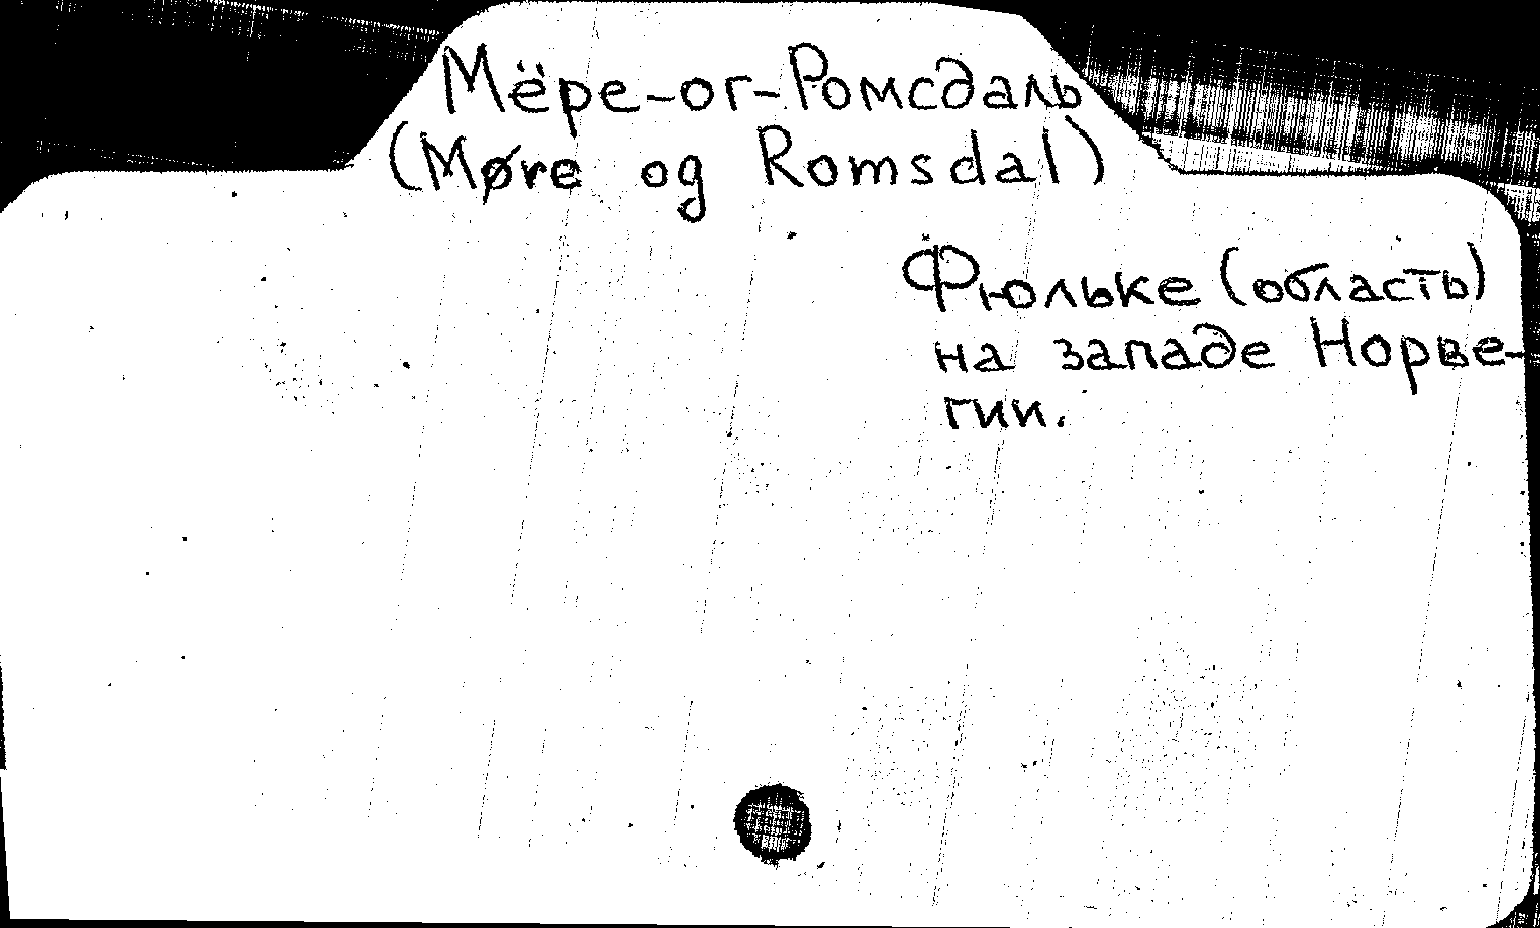 Мёре-ог-Ромсдаль
(Møre og Romsdal)
Фюльке (область)
на западе Норве-
гии.